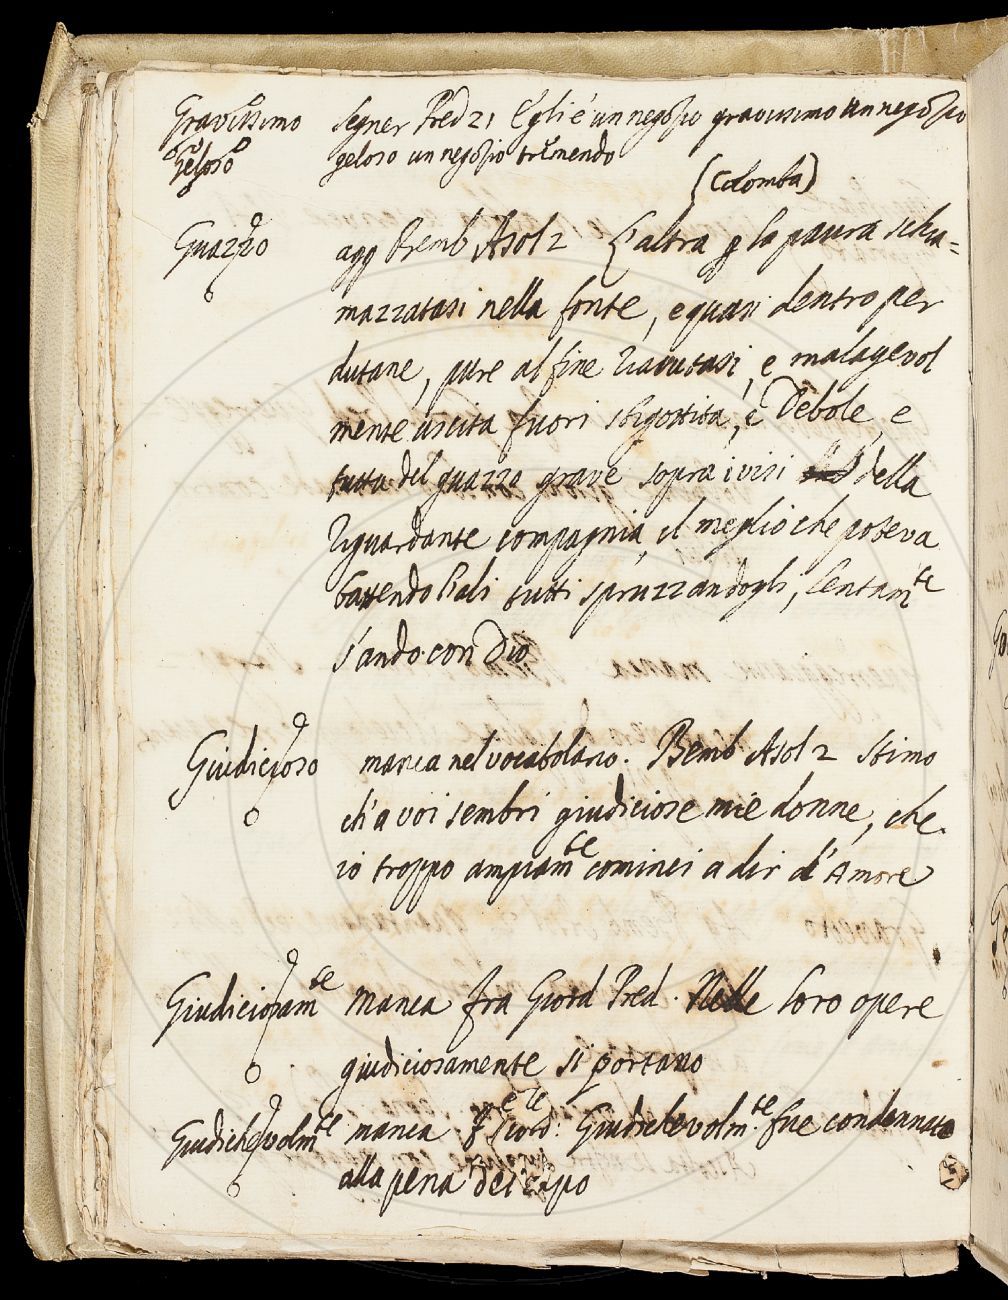 Gravissimo Segner Pred 21 Egli é un negozio gravissimo un negozio
Geloso geloso un negozio tremendo
(Colomba)
Guazzo agg Bemb Asol 2 L'altra p la paura schia=
mazzatasi nella fonte, e quasi dentro per
dutane, pure al fine riavutasi, e malagevol
mente uscita fuori sbigottita, e debole, e
tutta del guazzo grave sopra i visi della
riguardante compagnia, il meglio che poteva
battendo l'ali tutti spruzzandogli, lentam.te
s'andò con Dio
Giudicioso manca nel vocabolario. Bemb Asol 2 Stimo
ch'a voi sembri giudiciose mie donne, che
io troppo ampiam.te cominci a dir d'Amore
Giudiciosam.te manca fra Giord Pred. Nelle loro opere
giudiciosamente si portano
Giudichevolm.te manca Giord. Giudichevolm.te fue condannato
alla pena del capo